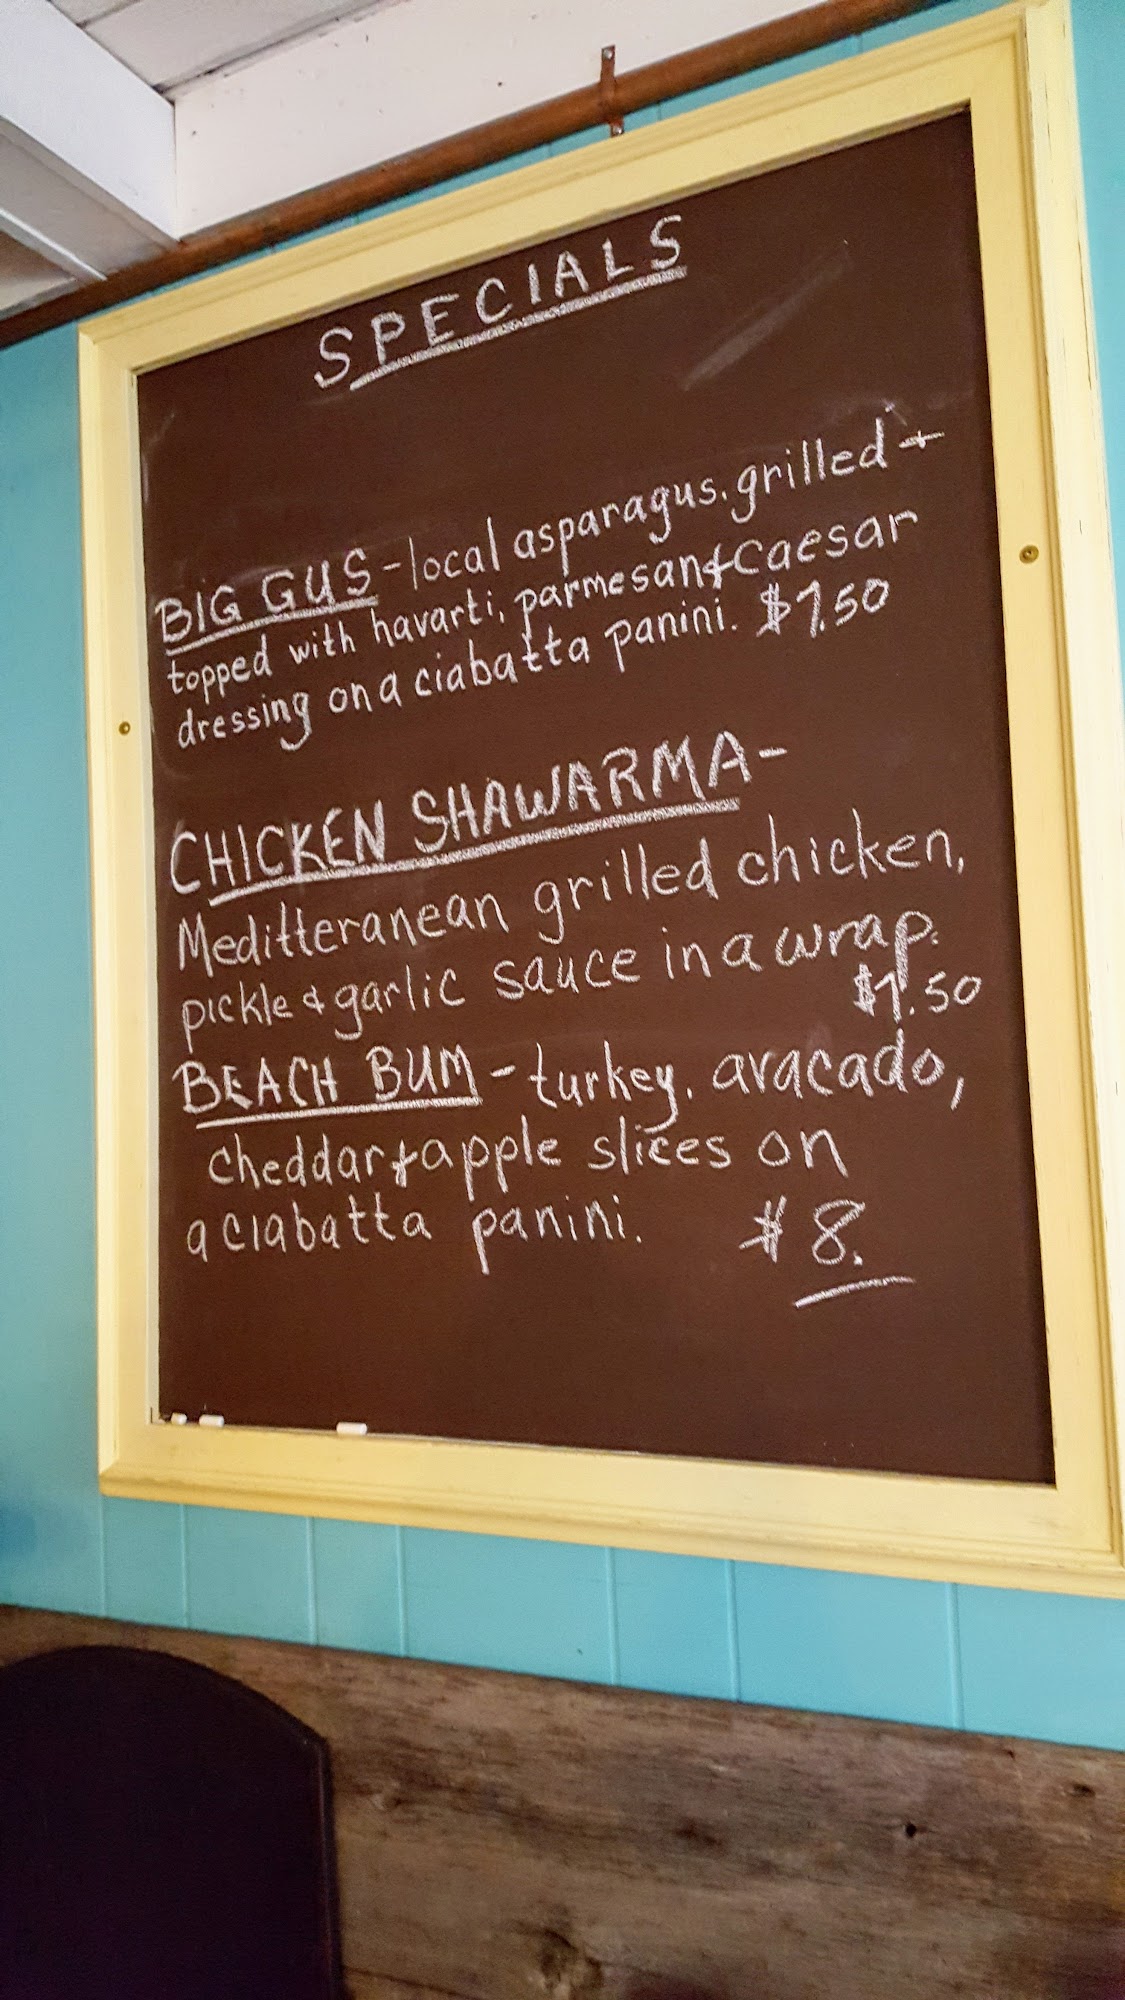 SPECIALS
BIG GUS - local asparagus. grilled +
topped with havarti, parmesan + Caesar
dressing on a ciabatta panini. $7.50
CHICKEN SHAWARMA -
Meditteranean grilled chicken,
pickle & garlic sauce in a wrap.
$7.50
BEACH BUM - turkey, avacado,
cheddar + apple slices on
a ciabatta panini. $8.